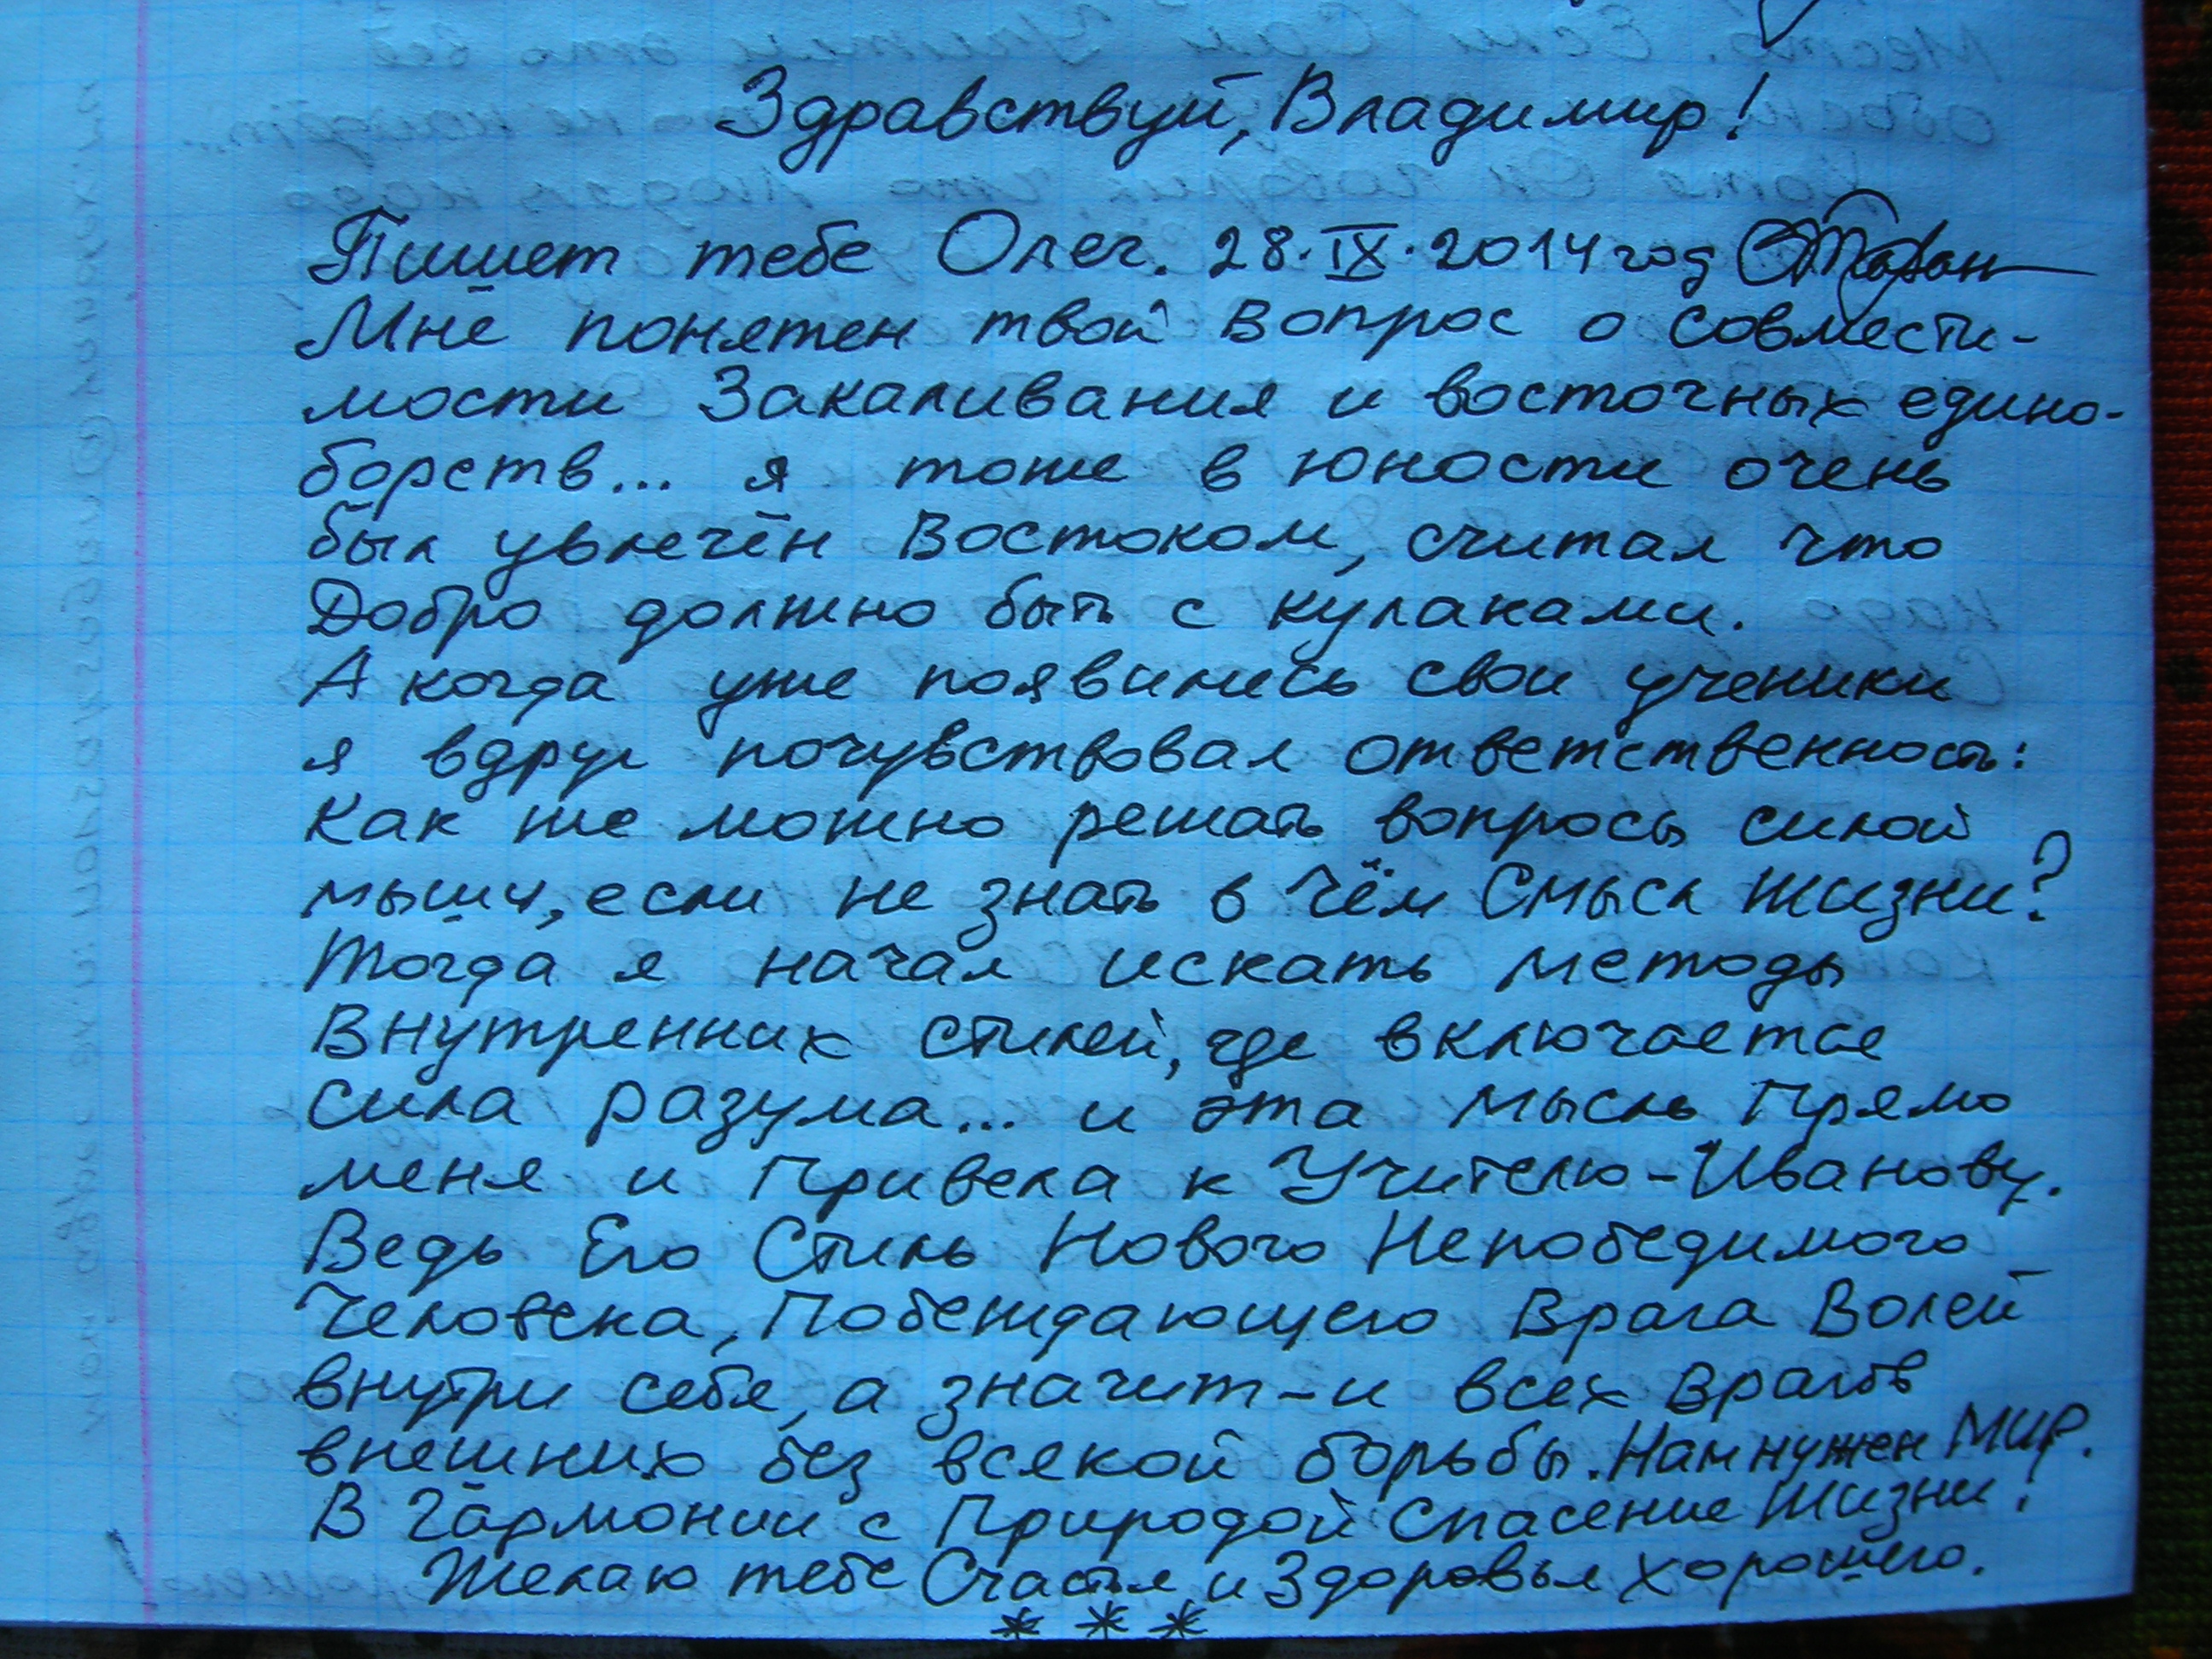 Здравствуй, Владимир!
Пишет тебе Олег. 28.IX.2014 год
Мне понятен твой вопрос о совмести-
мости Закаливания и восточных едино-
борств... я тоже в юности очень
был увлечён Востоком, считал что
Добро должно быть с кулаками.
А когда уже появились свои ученики
я вдруг почувствовал ответственность:
Как же можно решать вопросы силой
мышц, если не знать в чём Смысл Жизни?
Тогда я начал искать методы
Внутренних стилей, где включается
сила разума... и эта мысль Прямо
меня и Привела к Учителю-Иванову.
Ведь Его Стиль Нового Непобедимого
Человека, Побеждающего Врага Волей
внутри себя, а значит-и всех врагов
внешних без всякой борьбы. Нам нужен МИР.
В Гармонии с Природой Спасение Жизни!
Желаю тебе Счастья и Здоровья хорошего.
* * *